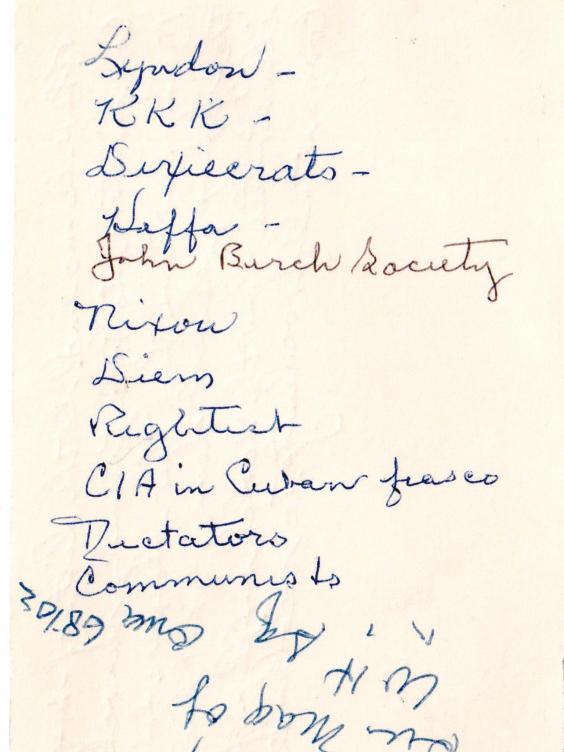 Lyndon -
KKK -
Dixiecrats -
Hoffa -
John Birch Society
Nixon
Diem
Rightist
CIA in Cuban fiasco
Dictators
Communists